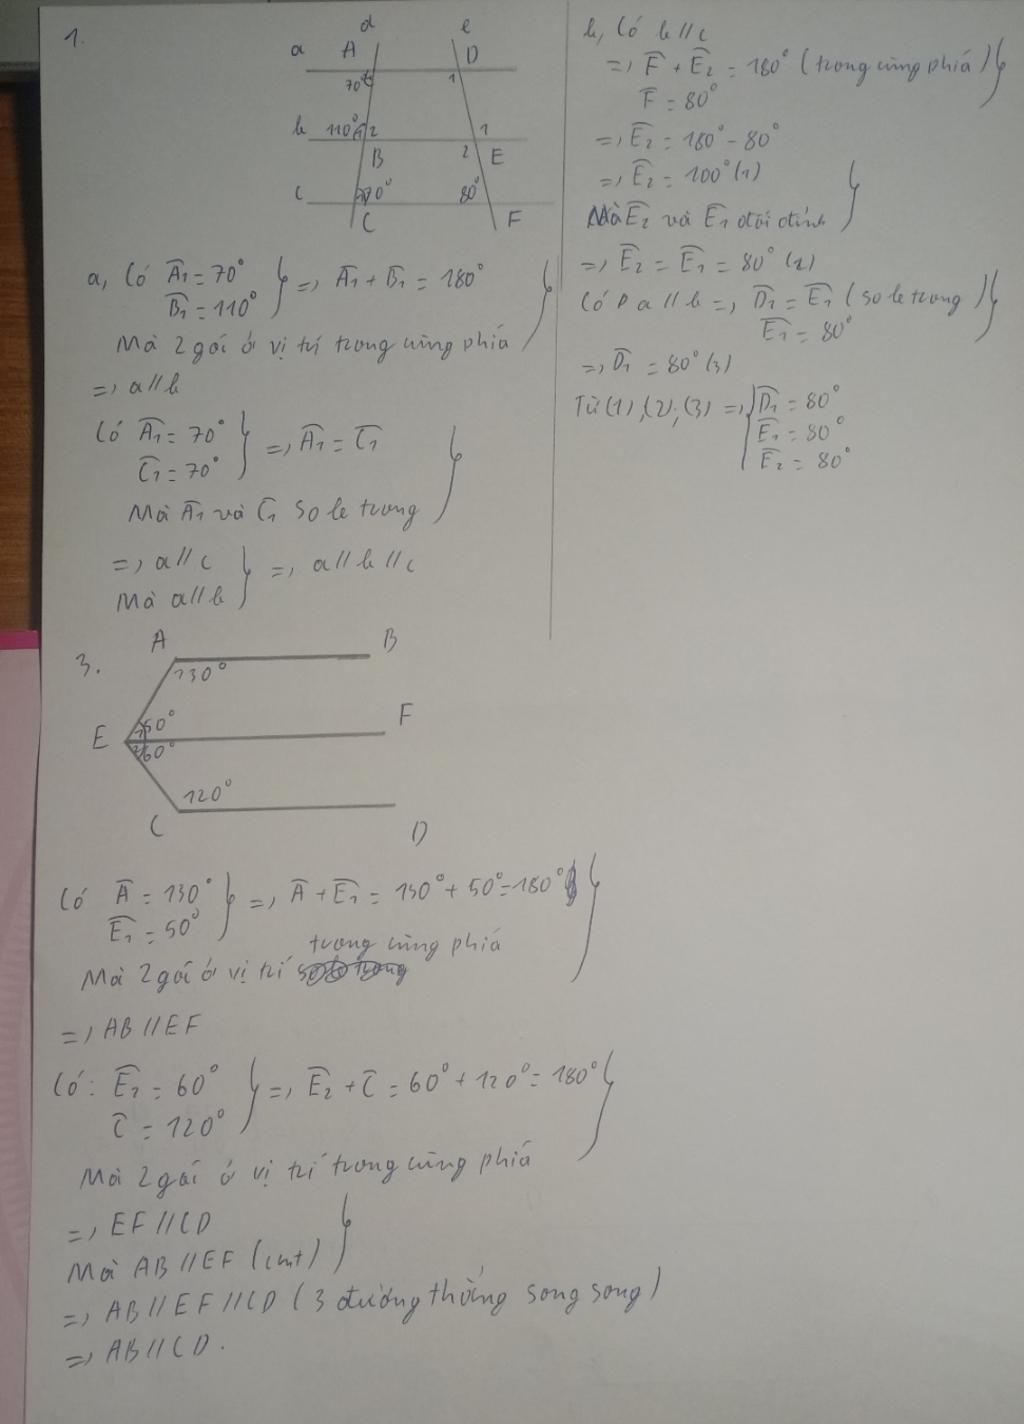 1.
d
e
a
A
D
70°
1
b
110°
1
2
1
B
2
E
c
70°
80°
C
F
a, Có A1 = 70°
B1 = 110°
=> A1 + B1 = 180°
Mà 2 góc ở vị trí trong cùng phía
=> a // b
Có A1 = 70°
C1 = 70°
=> A1 = C1
Mà A1 và C1 so le trong
=> a // c
Mà a // b
=> a // b // c
b, Có b // c
=> F + E2 = 180° (trong cùng phía)
F = 80°
=> E2 = 180° - 80°
=> E2 = 100° (1)
Mà E2 và E1 đối đỉnh
=> E2 = E1 = 80° (2)
Có a // b => D1 = E1 (so le trong)
E1 = 80°
=> D1 = 80° (3)
Từ (1), (2), (3) => D1 = 80°
E1 = 80°
E2 = 80°
3.
A
B
130°
E
50°
F
60°
120°
C
D
Có A = 130°
E1 = 50°
=> A + E1 = 130° + 50° = 180°
trong cùng phía
Mà 2 góc ở vị trí
=> AB // EF
Có: E2 = 60°
C = 120°
=> E2 + C = 60° + 120° = 180°
Mà 2 góc ở vị trí trong cùng phía
=> EF // CD
Mà AB // EF (cmt)
=> AB // EF // CD (3 đường thẳng song song)
=> AB // CD.